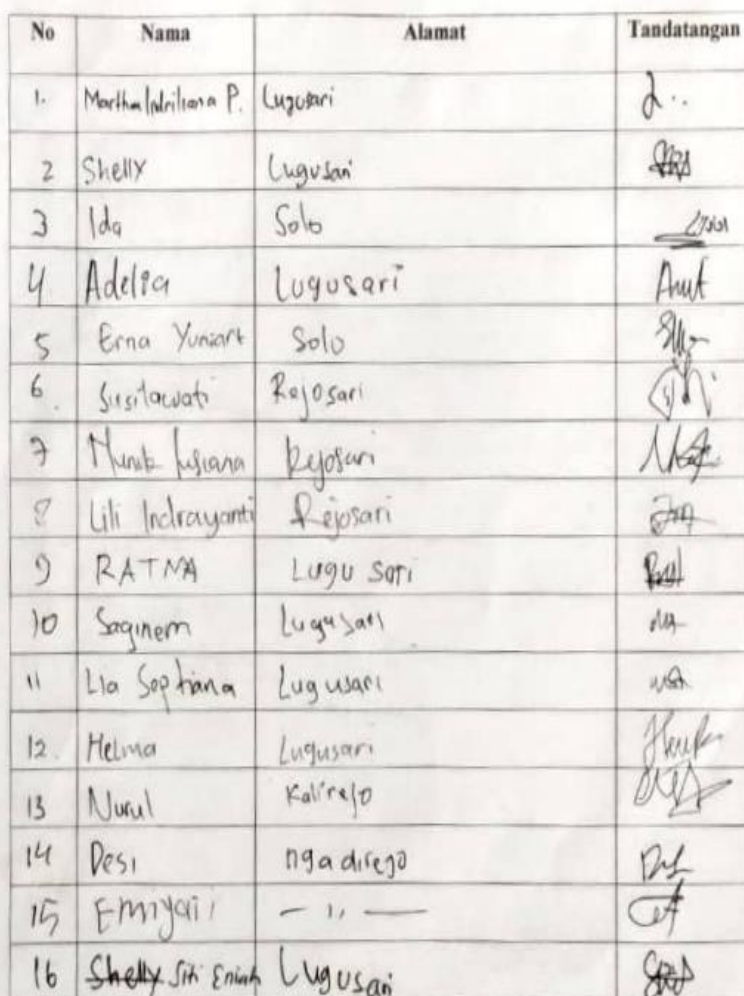 No Nama Alamat Tandatangan
1. Martha Indriliana P. Lugusari
2 Shelly Lugusari
3 Ida Solo
4 Adelia Lugusari
5 Erna Yuniart Solo
6. Susilawati Rejosari
7 Lusiana Rejosari
8 Lili Indrayanti Rejosari
9 RATNA Lugu Sari
10 Saginem Lugusari
11 Lia Septiana Lugusari
12. Helma Lugusari
13 Nurul Kalirejo
14 Desi ngadirejo
15 — ,, —
16 Shelly Siti Eniah Lugusari